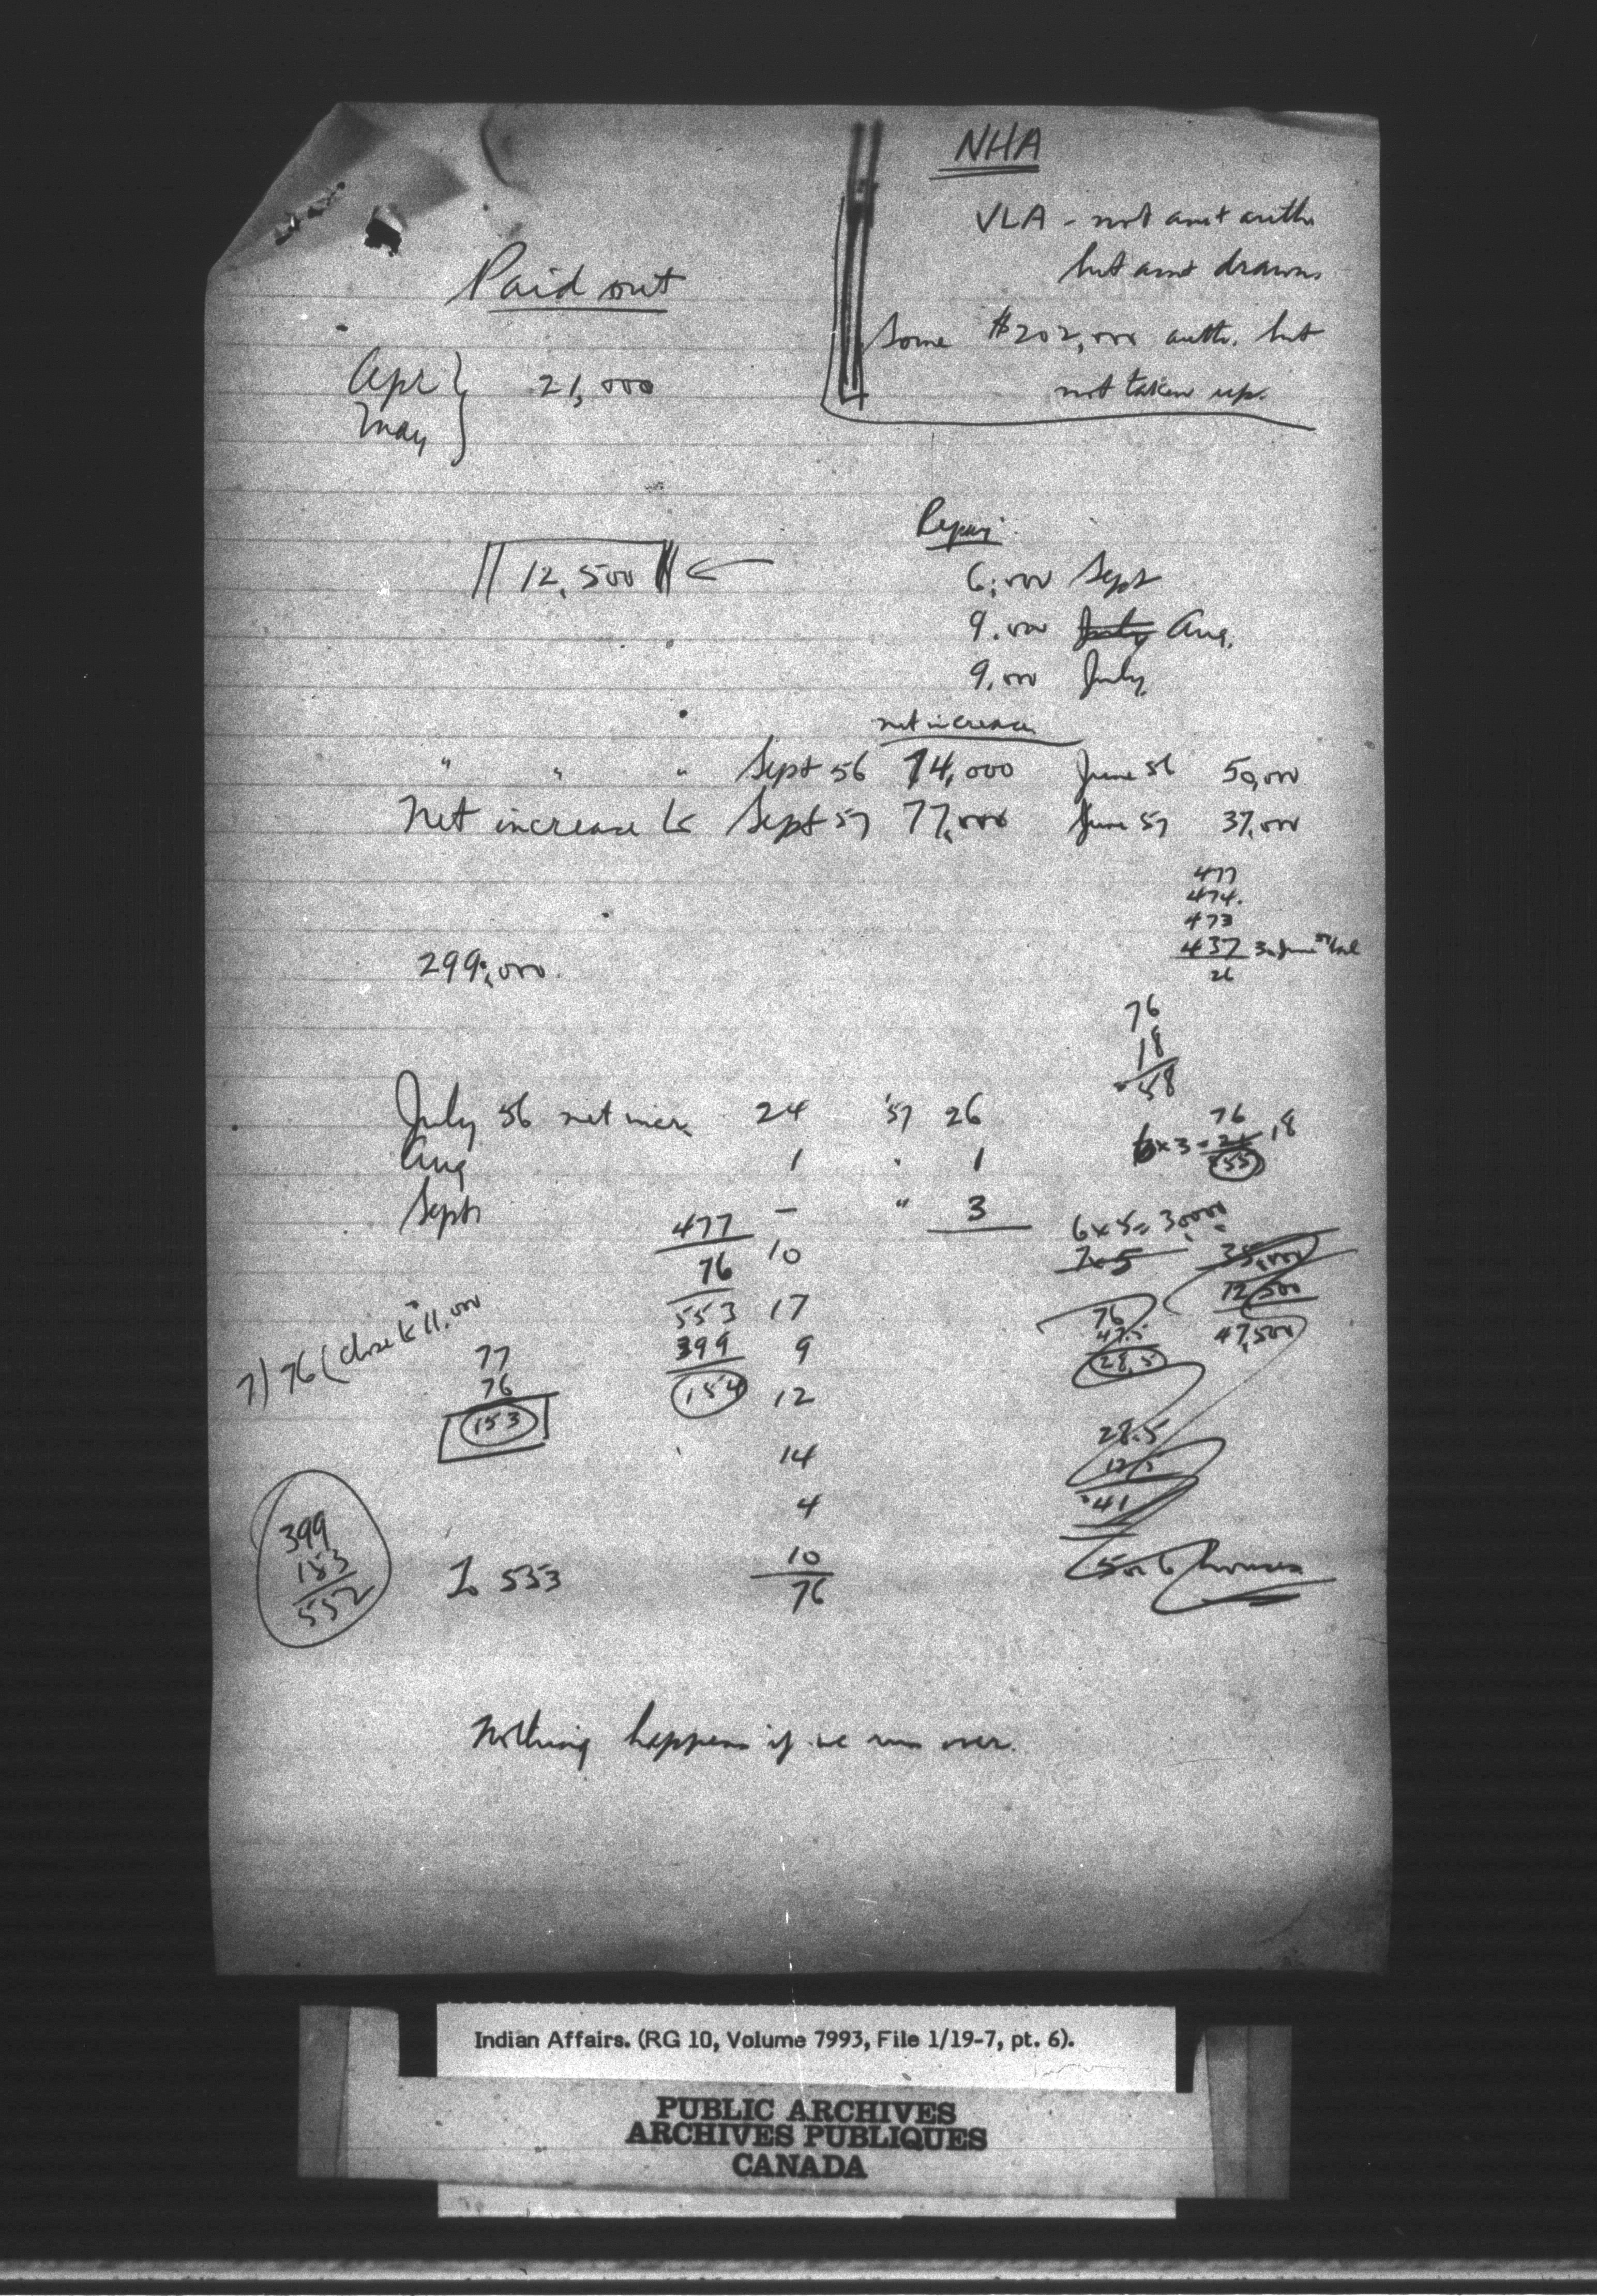 NHA
VLA - not amt auth.
but amt drawn
Some $202,000 auth. but
not taken up.
Paid out
Apr } 21,000
May
12,500 ←
6,000 Sept
9.000 July Aug.
9,000 July
net increase
" " " Sept 56 74,000 June 56 50,000
Net increase to Sept 57 77,000 June 57 37,000
477
474.
473
437 30 June 57 bal
26
299,000.
76
18
58
July 56 net incr. 24 '57 26
Aug 1 " 1
Sept - " 3
76
6 x 3 = 21 18
55
477 10
76
553 17
399 9
154 12
14
4
10
76
6 x 5 = 30,000
7 x 5 35,000
12,500
47,500
76
47.5
28.5
28.5
12.5
41
5 or 6 houses
7) 76 (close to 11,000
77
76
153
399
153
552
To 553
Nothing happens if we run over.
Indian Affairs. (RG 10, Volume 7993, File 1/19-7, pt. 6).
PUBLIC ARCHIVES
ARCHIVES PUBLIQUES
CANADA